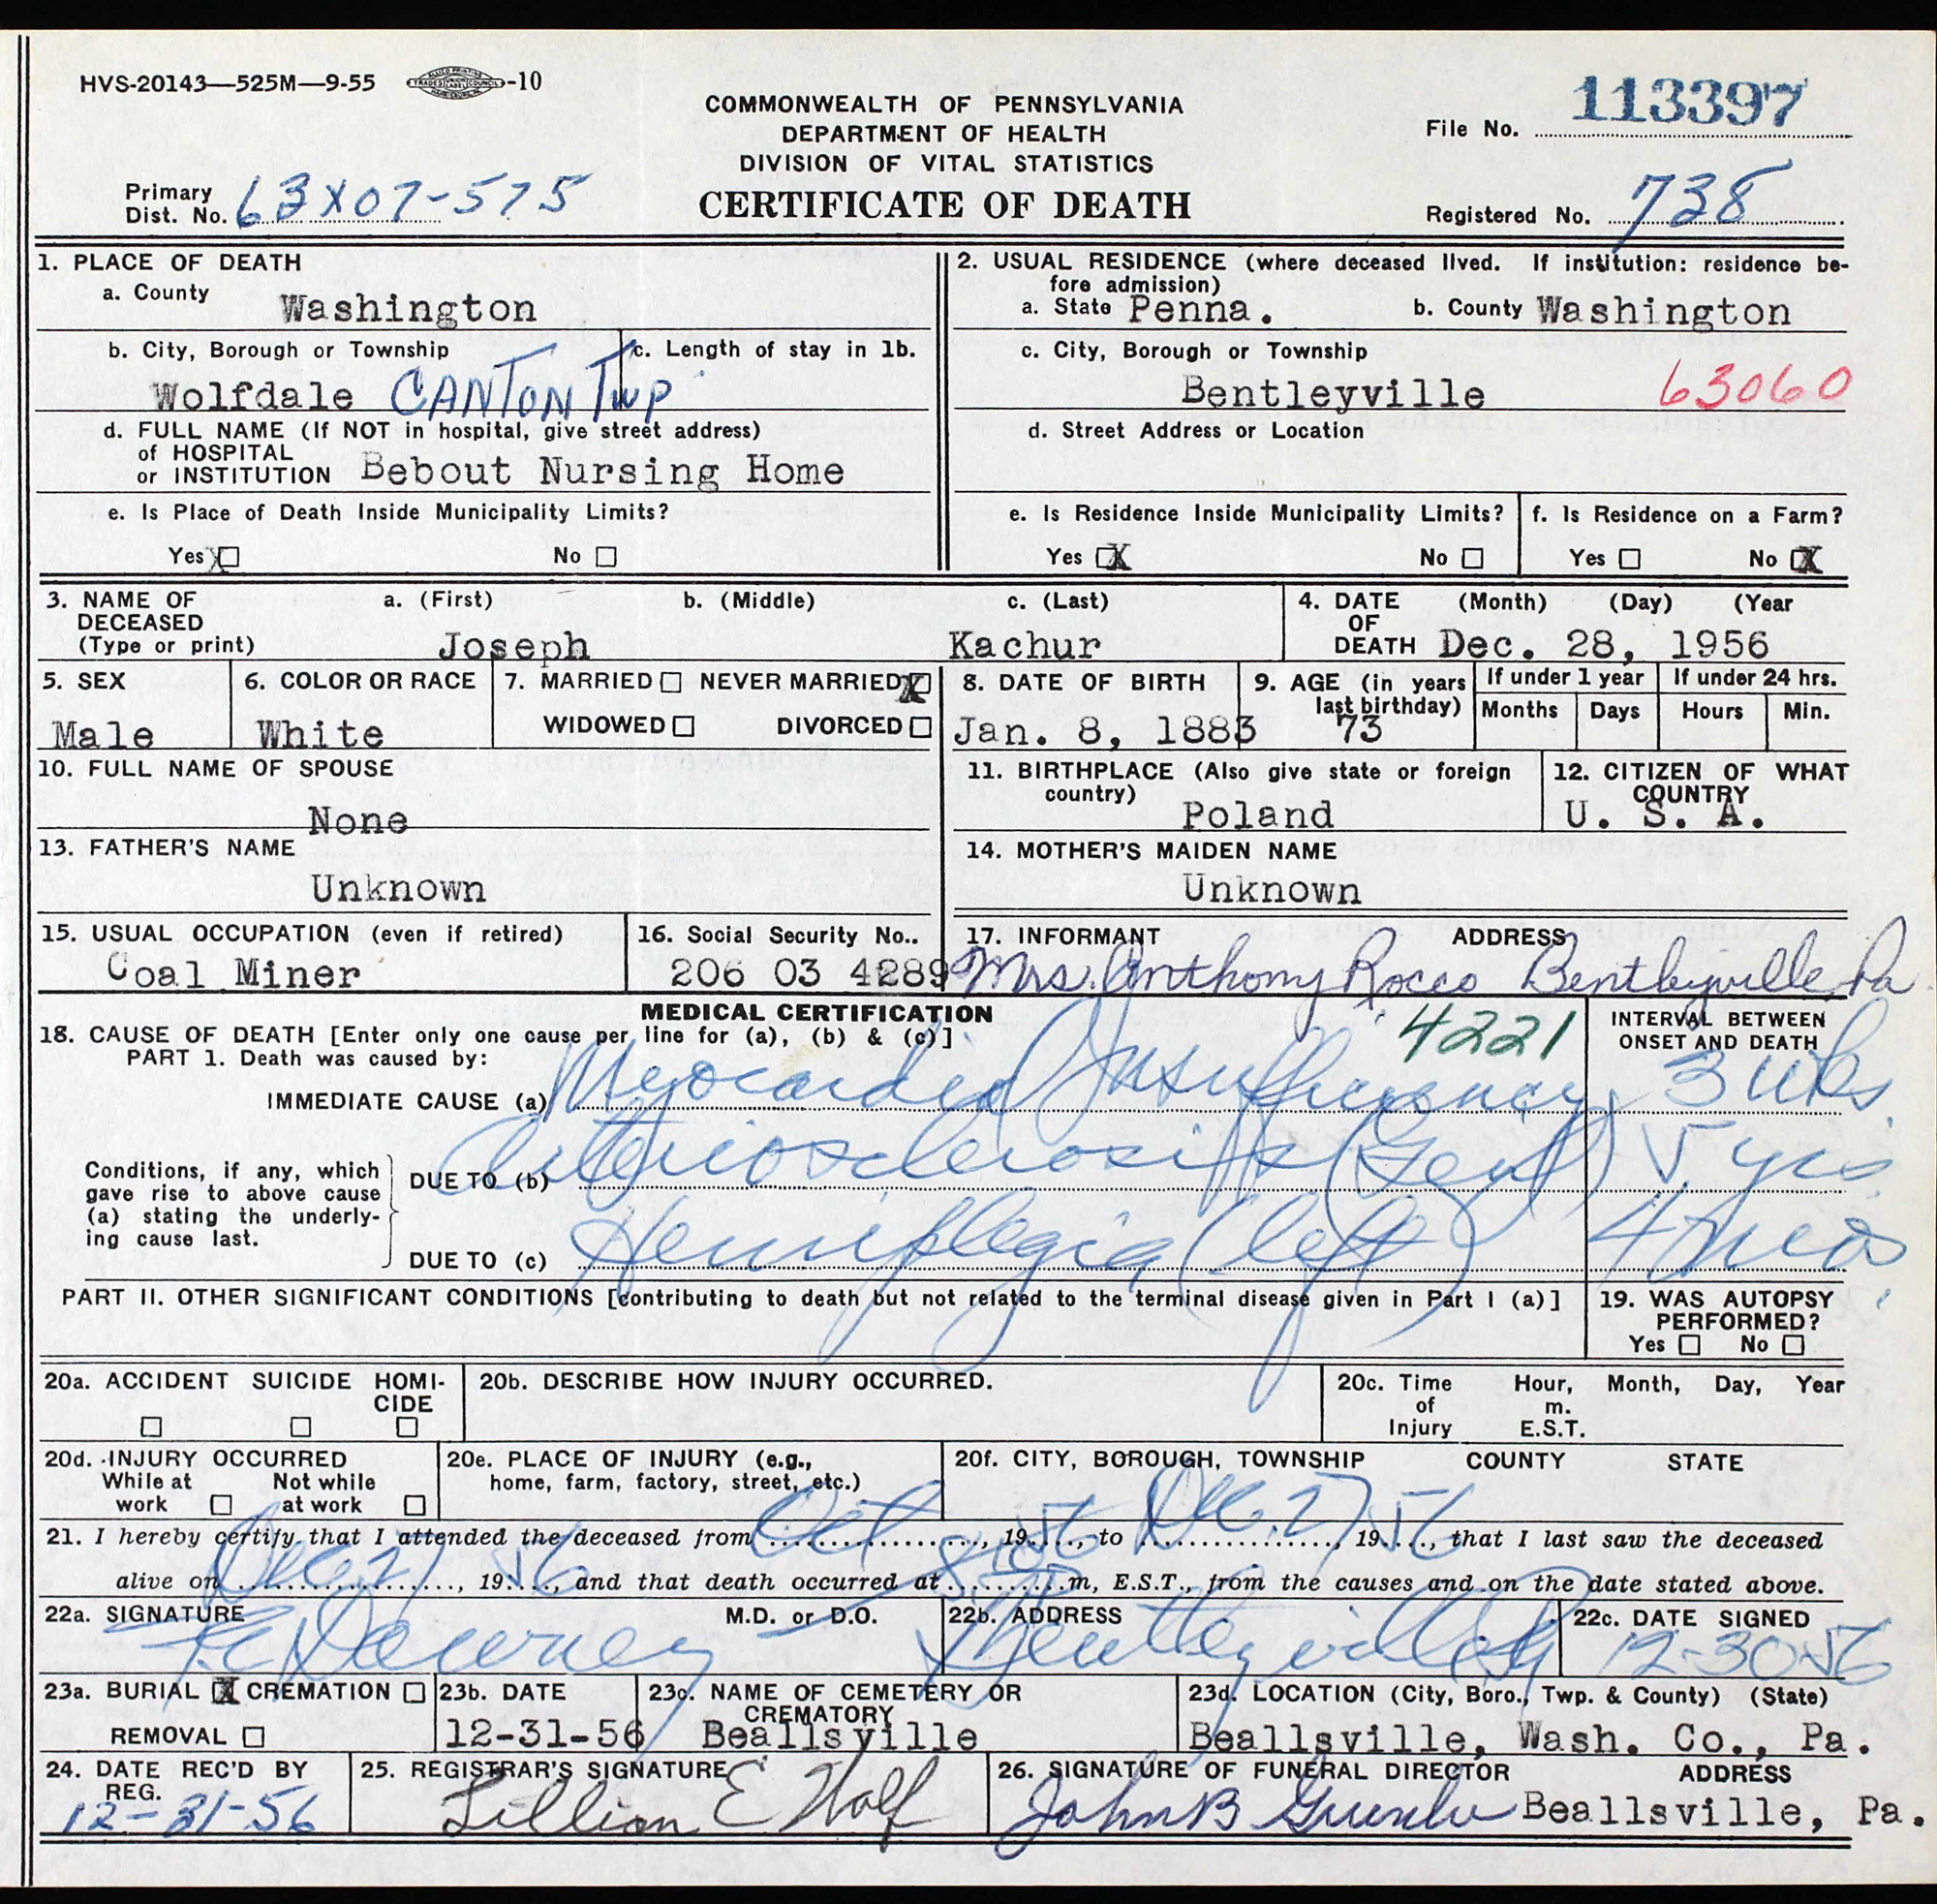 HVS-20143—525M—9-55 -10
COMMONWEALTH OF PENNSYLVANIA
DEPARTMENT OF HEALTH
DIVISION OF VITAL STATISTICS
CERTIFICATE OF DEATH
File No. 113397
Primary
Dist. No. 63X07-575
Registered No. 738
1. PLACE OF DEATH
a. County Washington
b. City, Borough or Township
Wolfdale CANTON TWP
c. Length of stay in 1b.
d. FULL NAME (If NOT in hospital, give street address)
of HOSPITAL
or INSTITUTION Bebout Nursing Home
e. Is Place of Death Inside Municipality Limits?
Yes X No
2. USUAL RESIDENCE (where deceased lived. If institution: residence be-
fore admission)
a. State Penna. b. County Washington
c. City, Borough or Township
Bentleyville 63060
d. Street Address or Location
e. Is Residence Inside Municipality Limits?
Yes X No
f. Is Residence on a Farm?
Yes No X
3. NAME OF
DECEASED
(Type or print)
a. (First) b. (Middle) c. (Last)
Joseph Kachur
4. DATE (Month) (Day) (Year
OF
DEATH Dec. 28, 1956
5. SEX
Male
6. COLOR OR RACE
White
7. MARRIED NEVER MARRIED X
WIDOWED DIVORCED
8. DATE OF BIRTH
Jan. 8, 1883
9. AGE (in years
last birthday)
73
If under 1 year
Months Days
If under 24 hrs.
Hours Min.
10. FULL NAME OF SPOUSE
None
11. BIRTHPLACE (Also give state or foreign
country)
Poland
12. CITIZEN OF WHAT
COUNTRY
U. S. A.
13. FATHER'S NAME
Unknown
14. MOTHER'S MAIDEN NAME
Unknown
15. USUAL OCCUPATION (even if retired)
Coal Miner
16. Social Security No..
206 03 4289
17. INFORMANT ADDRESS
Mrs. Anthony Rocco Bentleyville, Pa
MEDICAL CERTIFICATION
18. CAUSE OF DEATH [Enter only one cause per line for (a), (b) & (c)] 4221
PART 1. Death was caused by:
INTERVAL BETWEEN
ONSET AND DEATH
IMMEDIATE CAUSE (a) Myocardial Insufficiency 3 wks.
Conditions, if any, which
gave rise to above cause
(a) stating the underly-
ing cause last.
DUE TO (b) Arteriosclerosis (Genl) 5 yrs.
DUE TO (c) Hemiplegia (left) 4 mos.
PART II. OTHER SIGNIFICANT CONDITIONS [contributing to death but not related to the terminal disease given in Part I (a)]
19. WAS AUTOPSY
PERFORMED?
Yes No
20a. ACCIDENT SUICIDE HOMI-
CIDE
20b. DESCRIBE HOW INJURY OCCURRED.
20c. Time Hour, Month, Day, Year
of m.
Injury E.S.T.
20d. INJURY OCCURRED
While at Not while
work at work
20e. PLACE OF INJURY (e.g.,
home, farm, factory, street, etc.)
20f. CITY, BOROUGH, TOWNSHIP COUNTY STATE
21. I hereby certify that I attended the deceased from Oct, 1956, to Dec. 27, 1956, that I last saw the deceased
alive on Dec 27, 1956, and that death occurred at m, E.S.T., from the causes and on the date stated above.
22a. SIGNATURE M.D. or D.O.
Downey
22b. ADDRESS
Bentleyville Pa
22c. DATE SIGNED
12-30-56
23a. BURIAL X CREMATION
REMOVAL
23b. DATE
12-31-56
23c. NAME OF CEMETERY OR
CREMATORY
Beallsville
23d. LOCATION (City, Boro., Twp. & County) (State)
Beallsville, Wash. Co., Pa.
24. DATE REC'D BY
REG.
12-31-56
25. REGISTRAR'S SIGNATURE
Lillian E Wolf
26. SIGNATURE OF FUNERAL DIRECTOR ADDRESS
John B Beallsville, Pa.